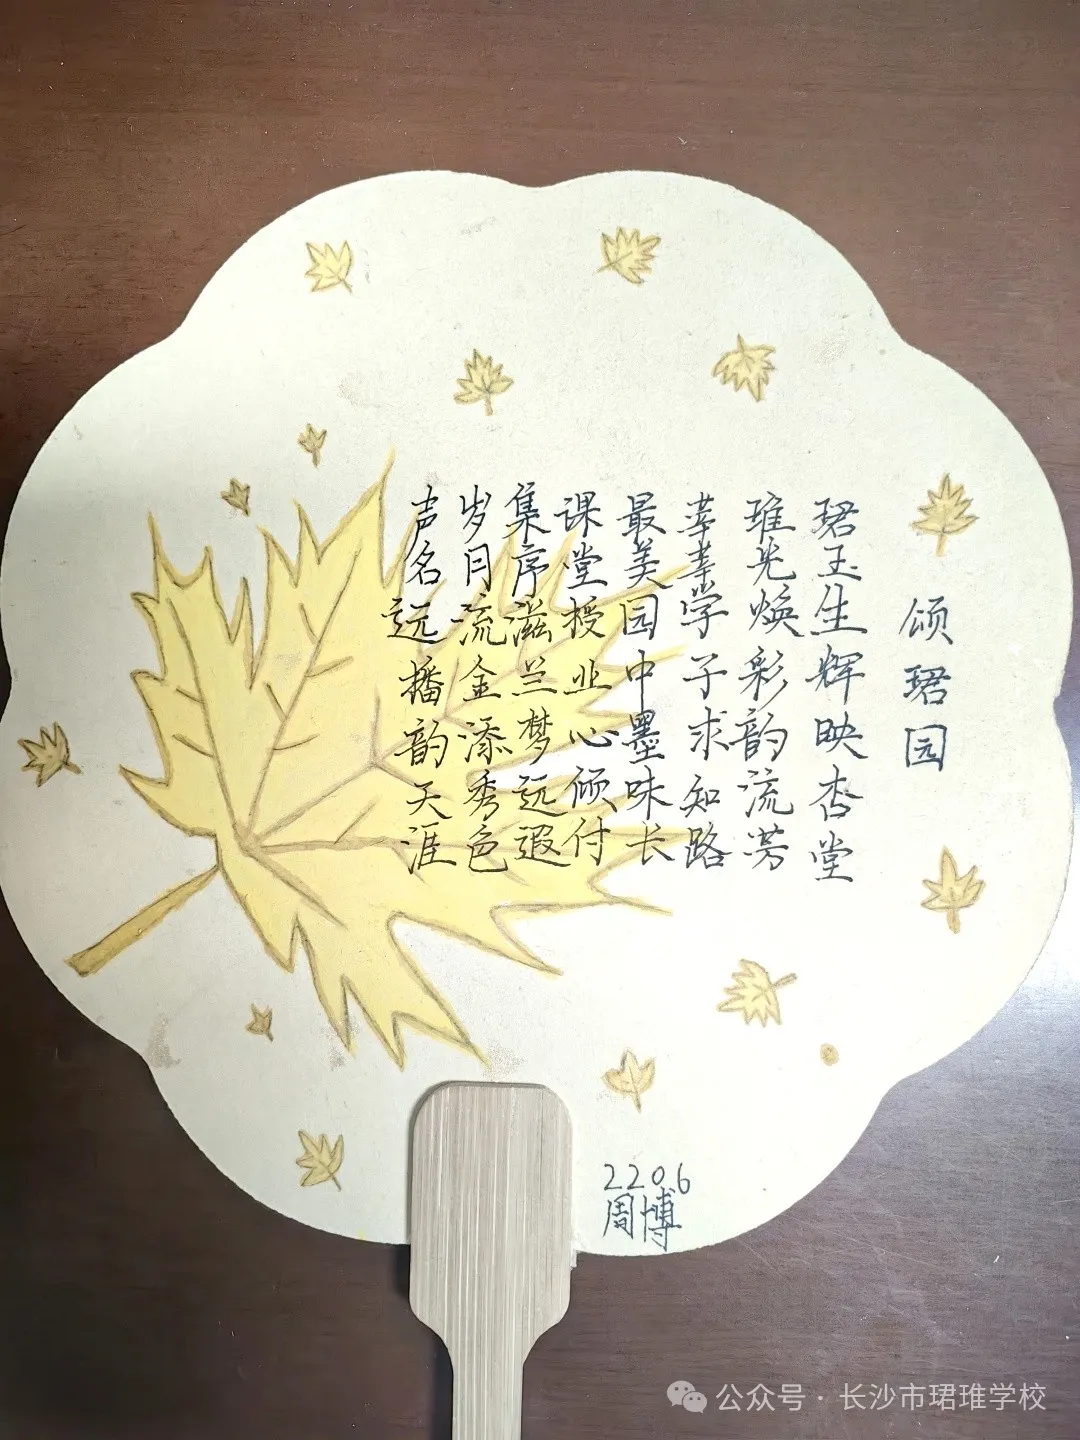 颂珺园
珺玉生辉映杏堂
琟光焕彩韵流芳
莘莘学子求知路
最美园中墨味长
课堂授业心倾付
集序滋兰梦远遐
岁月流金添秀色
声名远播韵天涯
2206
周博
公众号·长沙市珺琟学校